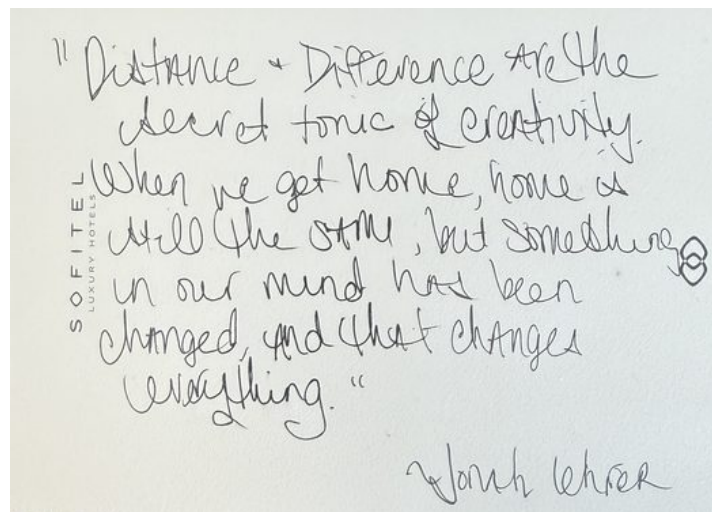 " Distance + Difference are the
secret tonic of creativity.
When we get home, home is
still the same, but something
in our mind has been
changed, and that changes
everything. "
Jonah Lehrer
SOFITEL
LUXURY HOTELS